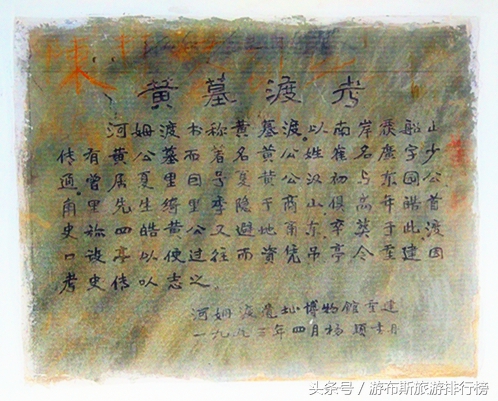 黄墓渡考
河姆渡称黄墓渡。以南岸船
传有黄公墓而著名黄公姓崔名廣字少
通曾居夏里因号夏黄公汉初与东园公
甪里先生绮里季隐于商山俱高年皓首
史称四皓黄公又避地而东卒葬于此渡
口设亭以便过往而资凭吊亭今重建因
考史传以志之。
河姆渡遗址博物馆重建
一九九三年四月杨
头条号/游布斯旅游排行榜